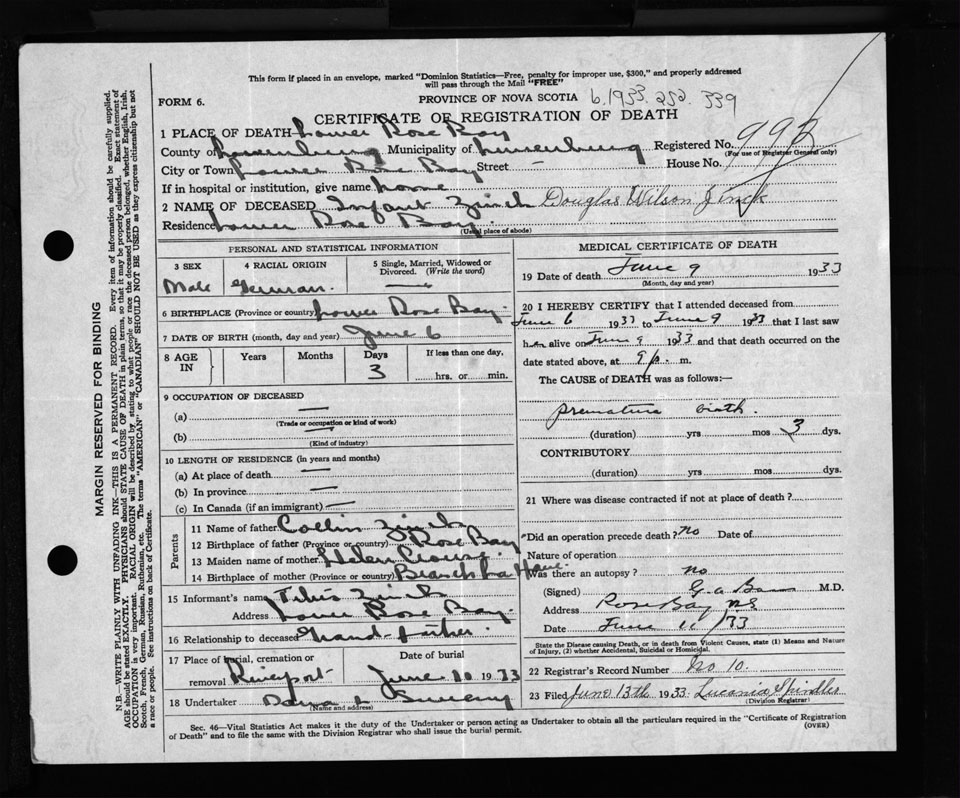 This form if placed in an envelope, marked "Dominion Statistics—Free, penalty for improper use, $300," and properly addressed
will pass through the Mail "FREE"
FORM 6.
PROVINCE OF NOVA SCOTIA 6.1933.252.339
CERTIFICATE OF REGISTRATION OF DEATH
1 PLACE OF DEATH Lower Rose Bay
County of Lunenburg Municipality of Lunenburg Registered No. 992
(For use of Registrar General only)
City or Town Lower Rose Bay Street — House No.
If in hospital or institution, give name home
2 NAME OF DECEASED Infant Zinck Douglas Wilson Zinck
Residence Lower Rose Bay.
(Usual place of abode)
PERSONAL AND STATISTICAL INFORMATION
3 SEX
Male
4 RACIAL ORIGIN
German.
5 Single, Married, Widowed or
Divorced. (Write the word)
—
6 BIRTHPLACE (Province or country) Lower Rose Bay.
7 DATE OF BIRTH (month, day and year) June 6
8 AGE IN
Years
Months
Days
3
If less than one day,
hrs. or min.
9 OCCUPATION OF DECEASED
(a) —
(Trade or occupation or kind of work)
(b) —
(Kind of industry)
10 LENGTH OF RESIDENCE (in years and months)
(a) At place of death —
(b) In province —
(c) In Canada (if an immigrant) —
Parents
11 Name of father Collin Zinck
12 Birthplace of father (Province or country) Rose Bay
13 Maiden name of mother Helen
14 Birthplace of mother (Province or country) Branch La Have
15 Informant's name Titus Zinck
Address Lower Rose Bay.
16 Relationship to deceased Grand-father.
17 Place of burial, cremation or
removal Riverport
Date of burial
June 10 1933
18 Undertaker
(Name and address)
MEDICAL CERTIFICATE OF DEATH
19 Date of death June 9 1933
(Month, day and year)
20 I HEREBY CERTIFY that I attended deceased from
June 6 1933 to June 9 1933 that I last saw
him alive on June 9 1933 and that death occurred on the
date stated above, at 9 p. m.
The CAUSE of DEATH was as follows:—
premature birth.
(duration) yrs mos 3 dys.
CONTRIBUTORY
(duration) yrs mos dys.
21 Where was disease contracted if not at place of death?
Did an operation precede death? no Date of
Nature of operation
Was there an autopsy? no
(Signed) G. A. M.D.
Address Rose Bay, N.S.
Date June 11/33
State the Disease causing Death, or in death from Violent Causes, state (1) Means and Nature
of Injury, (2) whether Accidental, Suicidal or Homicidal.
22 Registrar's Record Number No 10.
23 Filed June 13th 1933. Lucania Spindler
(Division Registrar)
Sec. 46—Vital Statistics Act makes it the duty of the Undertaker or person acting as Undertaker to obtain all the particulars required in the "Certificate of Registration
of Death" and to file the same with the Division Registrar who shall issue the burial permit.
(OVER)
MARGIN RESERVED FOR BINDING
N.B.—WRITE PLAINLY WITH UNFADING INK—THIS IS A PERMANENT RECORD. Every item of information should be carefully supplied.
AGE should be stated EXACTLY. PHYSICIANS should STATE CAUSE OF DEATH in plain terms, so that it may be properly classified. Exact statement of
OCCUPATION is very important. RACIAL ORIGIN will be described by stating to what people or race the deceased person belonged, whether English, Irish,
Scotch, French, German, Russian, Ruthenian, etc. The terms "AMERICAN" or "CANADIAN" SHOULD NOT BE USED as they express citizenship but not
a race or people. See instructions on back of Certificate.